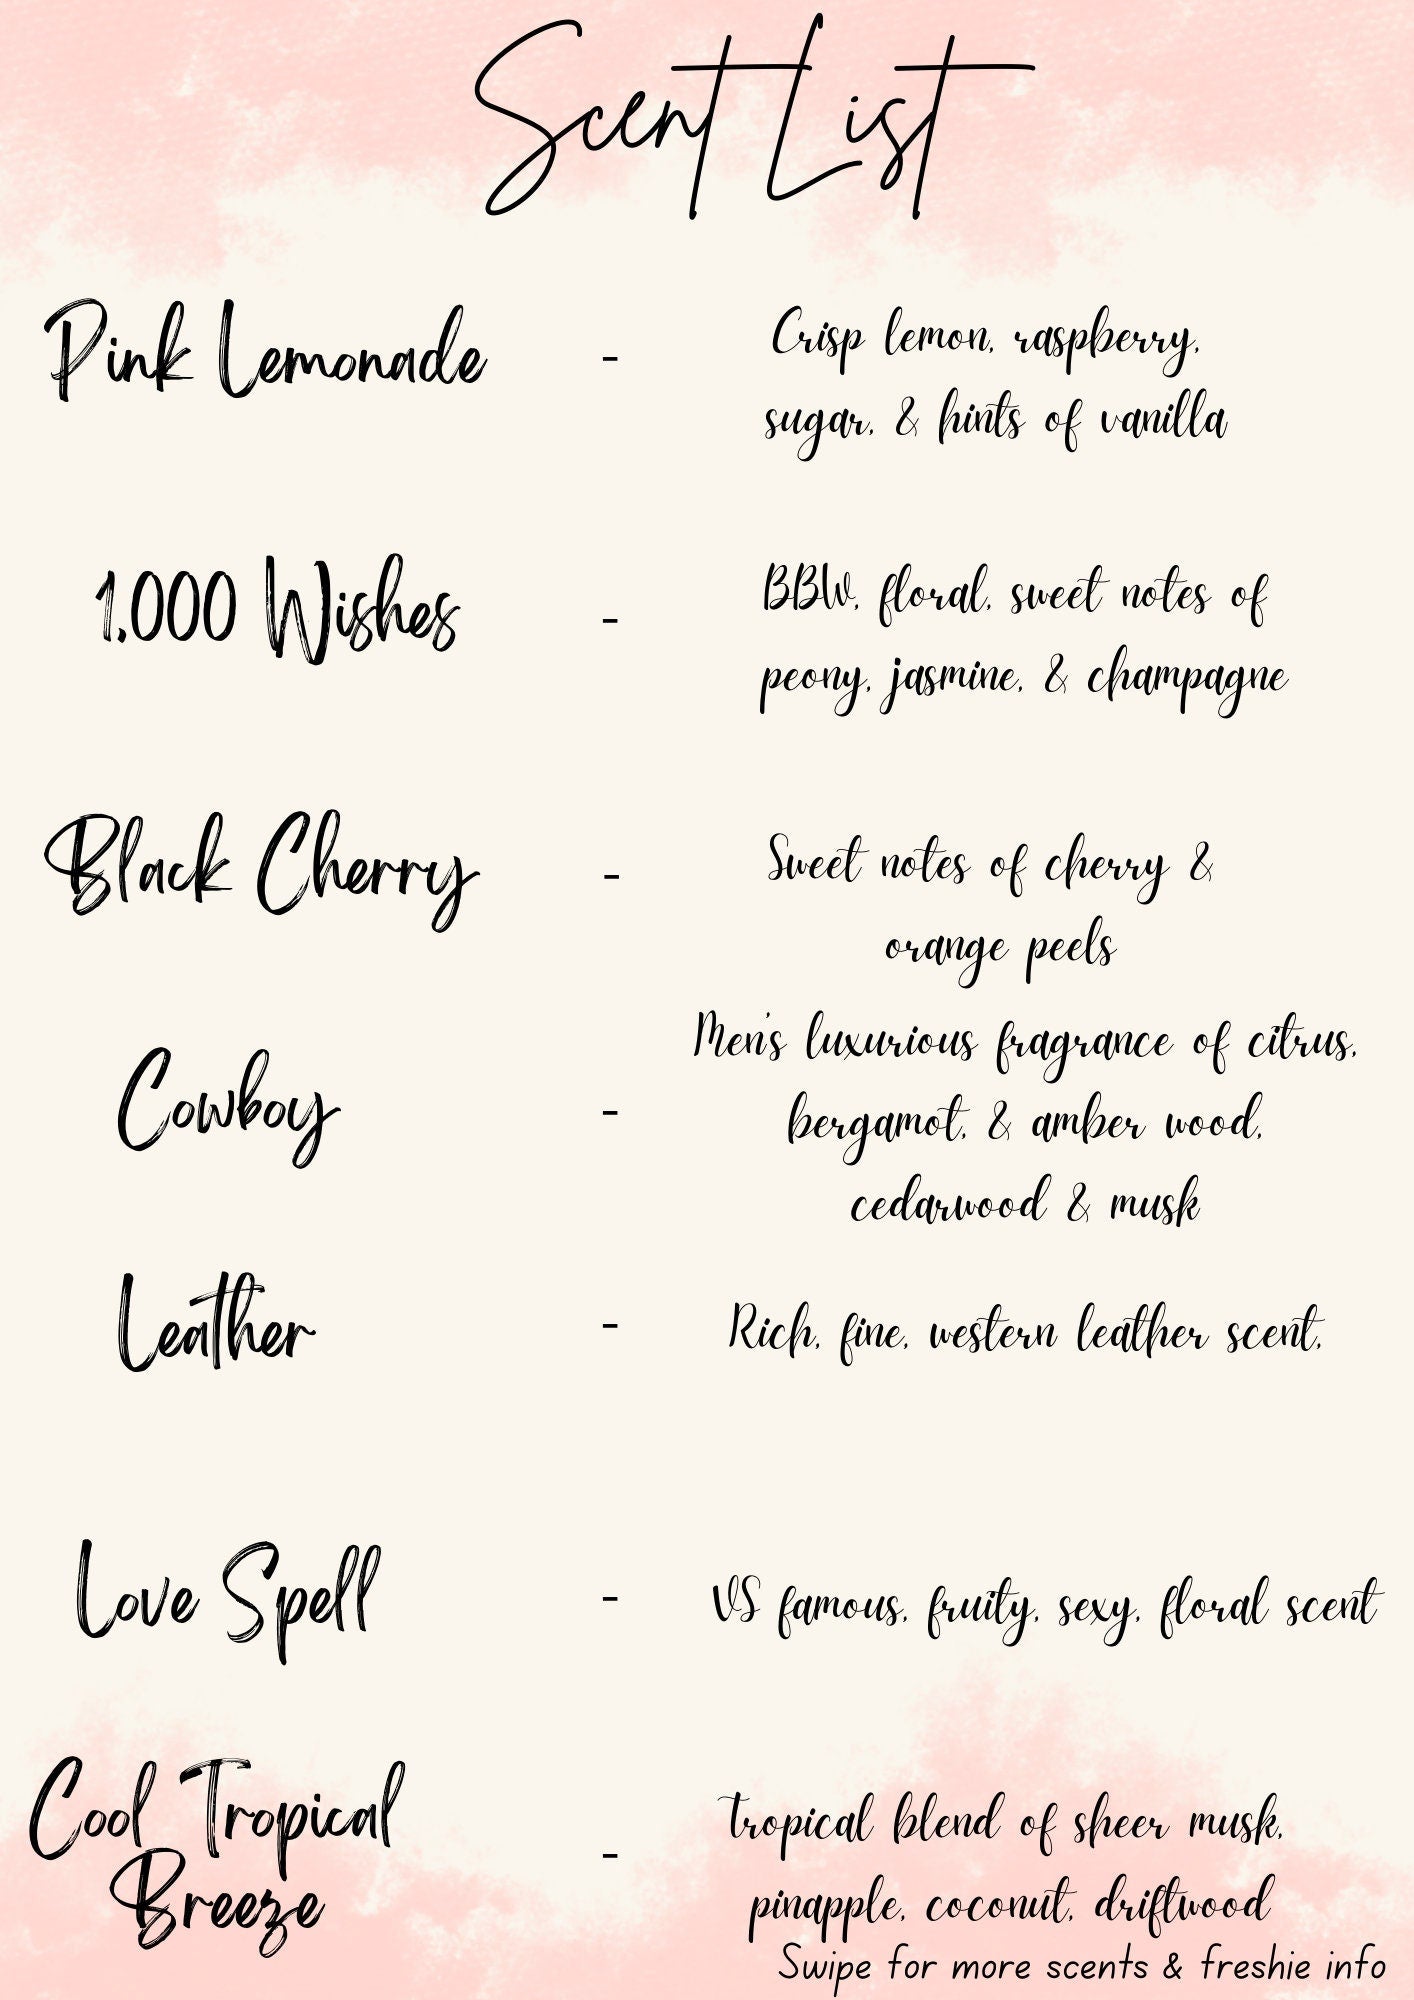 Scent List
Pink Lemonade - Crisp lemon, raspberry,
sugar, & hints of vanilla
1,000 Wishes - BBW, floral, sweet notes of
peony, jasmine, & champagne
Black Cherry - Sweet notes of cherry &
orange peels
Men's luxurious fragrance of citrus,
Cowboy - bergamot, & amber wood,
cedarwood & musk
Leather - Rich, fine, western leather scent,
Love Spell - VS famous, fruity, sexy, floral scent
Cool Tropical
Breeze - tropical blend of sheer musk,
pinapple, coconut, driftwood
Swipe for more scents & freshie info